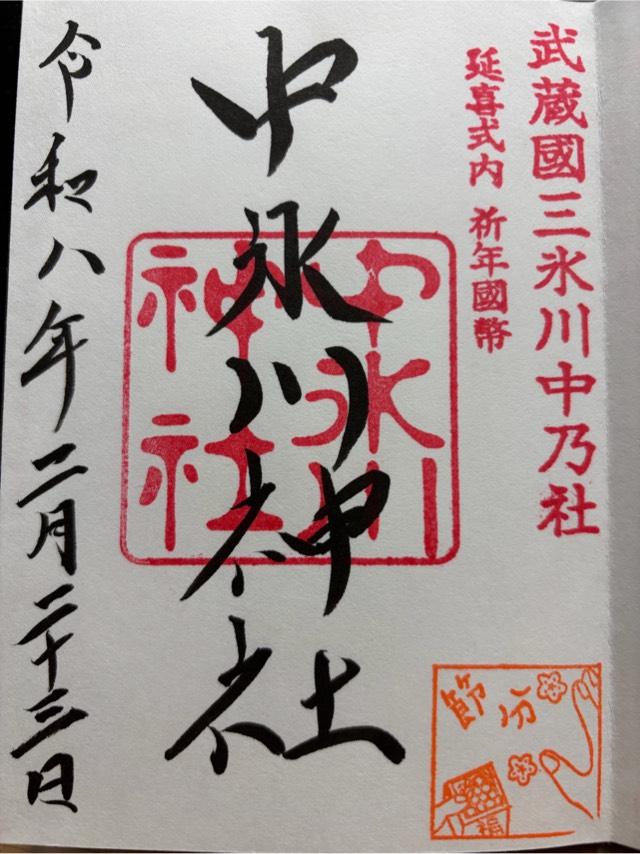 武蔵國三氷川中乃社
延喜式内 祈年國幣
中氷川神社
中氷川神社
令和八年二月二十三日
節分
福